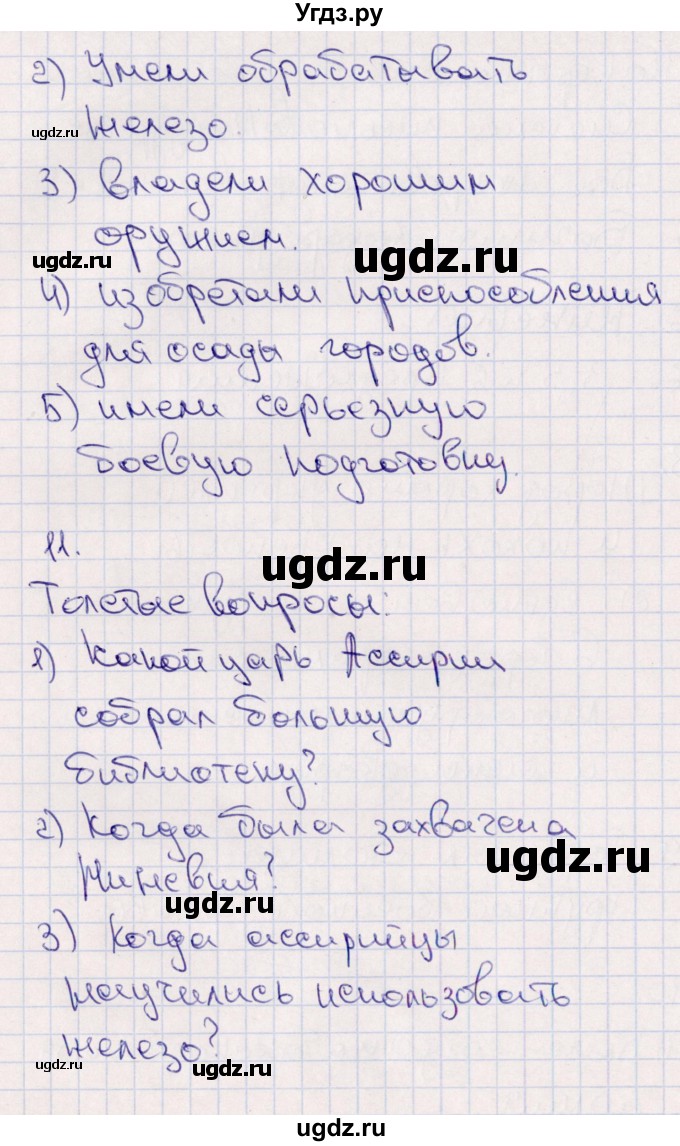 Угдз.ру
2) Умели обрабатывать
ugdz.ru железо.
3) владели хорошим
оружием.
ugdz.ru ugdz.ru
4) изобретали приспособления
для осады городов.
5) имели серьезную
боевую подготовку.
11. ugdz.ru
Толстые вопросы:
1) Какой царь Ассирии
собрал большую
библиотеку?
2) Когда была захвачена
ugdz.ru
Ниневия?
ugdz.ru
3) Когда ассирийцы
научились использовать
железо?
ugdz.ru ugdz.ru
ugdz.ru